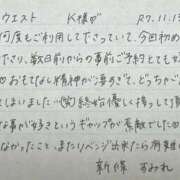 ウエスト　K様が　R7.11.13
何度もご利用して下さっていて、今回初め
たり、数日前からの事前ご予約とても
おもてなし精神が凄すぎて、どっちがご
いましまいました(笑)終始優しく接して頂
な事が好きというギャップが素敵でした
なかったこと、またリベンジ出来たら有難
新條 すみれ